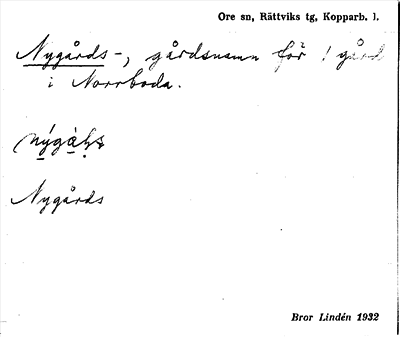 Ore sn, Rättviks tg, Kopparb. l.
Nygårds-, gårdsnamn för 1 gård
i Norrboda.
Nygårds
Bror Lindén 1932